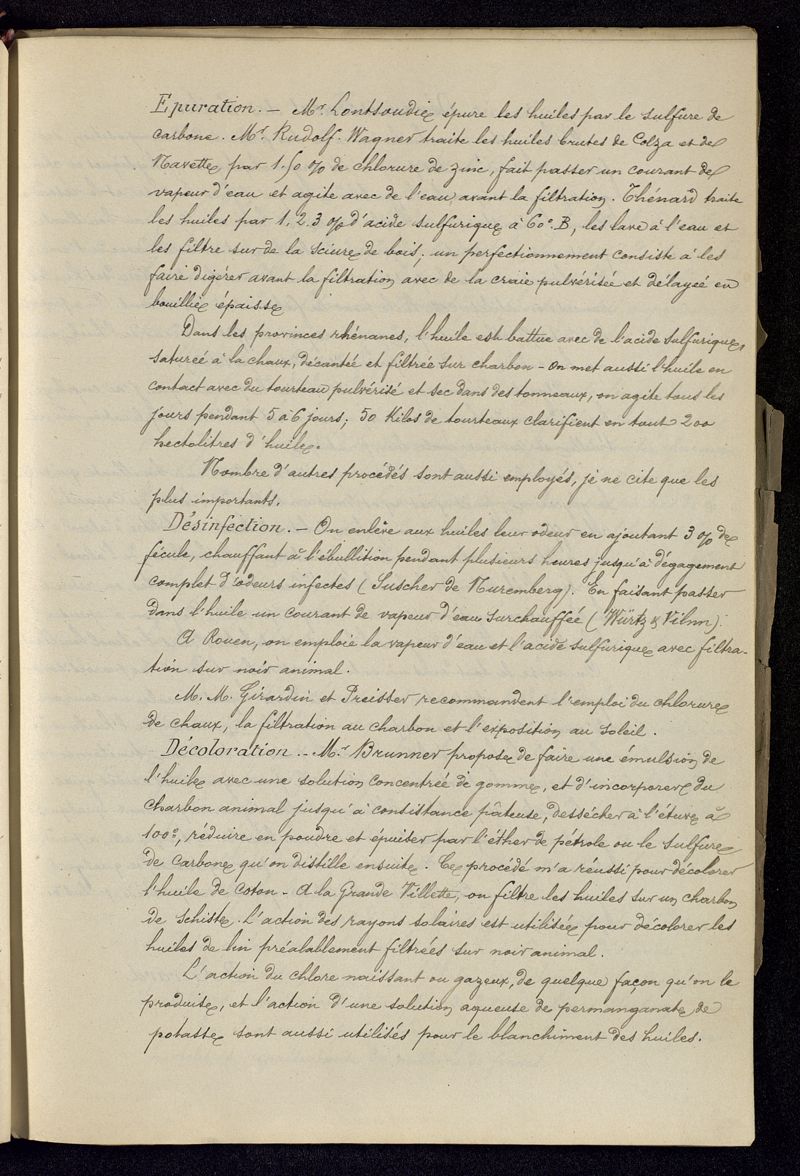 Epuration. — Mr. Lontsoudie épure les huiles par le sulfure de
carbone. Mr. Rudolf. Wagner traite les huiles brutes de Colza et de
Navette par 1.50 % de chlorure de zinc, fait passer un courant de
vapeur d'eau et agite avec de l'eau, avant la filtration. Thénard traite
les huiles par 1, 2, 3 % d'acide sulfurique à 60°. B, les lave à l'eau et
les filtre sur de la sciure de bois. un perfectionnement consiste à les
faire digérer avant la filtration avec de la craie pulvérisée et délayée en
bouillie épaisse
Dans les provinces rhénanes, l'huile est battue avec de l'acide sulfurique,
saturée à la chaux, décantée et filtrée sur charbon — On met aussi l'huile en
contact avec du tourteau pulvérisé et sec dans des tonneaux, on agite tous les
jours pendant 5 à 6 jours; 50 Kilos de tourteaux clarifient en tout 200
hectolitres d'huile.
Nombre d'autres procédés sont aussi employés, je ne cite que les
plus importants.
Désinfection. — On enlève aux huiles leur odeur en ajoutant 3 % de
fécule, chauffant à l'ébullition pendant plusieurs heures jusqu'à dégagement
complet d'odeurs infectes (Suscher de Nuremberg). En faisant passer
dans l'huile un courant de vapeur d'eau surchauffée (Würtz & Vilnn).
A Rouen, on emploie la vapeur d'eau et l'acide sulfurique avec filtra-
tion sur noir animal.
M. M. Girardin et Preisser recommandent l'emploi du chlorure
de chaux, la filtration au charbon et l'exposition au soleil.
Décoloration — Mr. Brunner propose de faire une émulsion de
l'huile avec une solution concentrée de gomme, et d'incorporer du
charbon animal jusqu'à consistance pâteuse, dessécher à l'étuve à
100°, réduire en poudre et épuiser par l'éther de pétrole ou le sulfure
de carbone qu'on distille ensuite. Ce procédé m'a réussi pour décolorer
l'huile de coton — A la Grande Villette, on filtre les huiles sur un charbon
de schiste. L'action des rayons solaires est utilisée pour décolorer les
huiles de lin préalablement filtrées sur noir animal.
L'action du chlore naissant ou gazeux, de quelque façon qu'on le
produise, et l'action d'une solution aqueuse de permanganate de
potasse sont aussi utilisés pour le blanchiment des huiles.